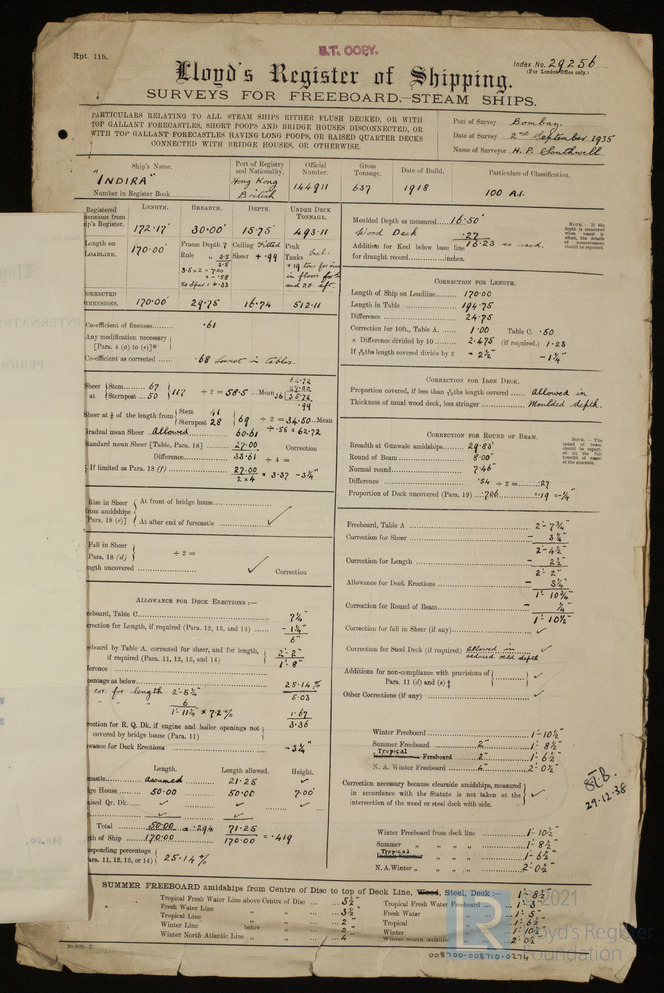 Rpt. 11b.
B.T. COPY.
Index No. 29256
(For London Office only.)
Lloyd's Register of Shipping.
SURVEYS FOR FREEBOARD.—STEAM SHIPS.
PARTICULARS RELATING TO ALL STEAM SHIPS EITHER FLUSH DECKED, OR WITH
TOP GALLANT FORECASTLES, SHORT POOPS AND BRIDGE HOUSES DISCONNECTED, OR
WITH TOP GALLANT FORECASTLES HAVING LONG POOPS, OR RAISED QUARTER DECKS
CONNECTED WITH BRIDGE HOUSES, OR OTHERWISE.
Port of Survey Bombay.
Date of Survey 2nd September 1935
Name of Surveyor H. P. Southwell
Ship's Name. Port of Registry and Nationality. Official Number. Gross Tonnage. Date of Build. Particulars of Classification.
"INDIRA" Hong Kong British 144911 637 1918 100 A.1.
Number in Register Book
LENGTH. BREADTH. DEPTH. UNDER DECK TONNAGE.
Registered
ship's Register. 172.17' 30.00' 15.75' 493.11
Length on LOADLINE. 170.00'
Frame Depth 7 Ceiling Fitted Peak
Rule 3.5 Sheer + .99 Tanks Incl.
3.5 x 2 = 7.00
170.00' 29.75 16.74 512.11
Co-efficient of fineness .61
Any modification necessary
[Para. 4 (a) to (e)]*
Co-efficient as corrected .68 lowest in tables.
Sheer at Stem 67 Sternpost 50 117 ÷ 2 = 58.5 Mean
62.72
27.00
36 35.72
.99
Sheer at ⅛ of the length from Stem 41 Sternpost 28 69 ÷ 2 = 34.50 Mean
Gradual mean Sheer Allowed 60.61 ÷ .55 = 62.72
Standard mean Sheer [Table, Para. 18] 27.00 Correction
Difference 33.61 ÷ 4 =
If limited as Para. 18 (f) 27.00 / 2x4 = 3.37 -3¼"
Rise in Sheer from amidships [Para. 18 (e)]
At front of bridge house
At after end of forecastle ✓
Fall in Sheer
Para. 18 (d) ÷ 2 =
ngth uncovered ✓ Correction
ALLOWANCE FOR DECK ERECTIONS :—
eeboard, Table C 7¼"
rection for Length, if required (Para. 12, 13, and 14) - 1¼"
6"
eeboard by Table A. corrected for sheer, and for length,
if required (Para. 11, 12, 13, and 14) 2'- 2"
ference 1'- 8"
centage as below 25.14 %
cor. for length 2'-5¼" 5.03
6
1'-11¼" x 7.2% 1.67
3.36
rection for R. Q. Dk. if engine and boiler openings not
covered by bridge house (Para. 11)
wance for Deck Erections -3¼"
Length. Length allowed. Height.
castle assumed 21.25
dge House 50.00 50.00 7.00'
aised Qr. Dk. ✓ ✓ ✓
Total 50.00 = .294 71.25
gth of Ship 170.00 170.00 = .419
responding percentage
ara. 11, 12, 13, or 14) 25.14 %
Moulded Depth as measured 16.50'
Wood Deck .27
Addition for Keel below base line 16.23 as used.
for draught record inches.
CORRECTION FOR LENGTH.
Length of Ship on Loadline 170.00
Length in Table 194.75
Difference 24.75
Correction for 10ft., Table A. 1.00 Table C. .50
× Difference divided by 10 2.475 (if required.) 1.23
If 6/10ths length covered divide by 2 = 2½" -1¼"
CORRECTION FOR IRON DECK.
Proportion covered, if less than 7/10ths length covered Allowed in
Thickness of usual wood deck, less stringer Moulded depth.
CORRECTION FOR ROUND OF BEAM.
Breadth at Gunwale amidships 29.83'
Round of Beam 8.00"
Normal round 7.46"
Difference .54 ÷ 2 = .27
Proportion of Deck uncovered (Para. 19) .706 .19 = -¼"
Freeboard, Table A 2'- 7¾"
Correction for Sheer - 3¼"
2'-4½"
Correction for Length - 2½"
2'- 2"
Allowance for Deck Erections - 3¼"
1'- 10¾"
Correction for Round of Beam - ¼"
1'- 10½"
Correction for fall in Sheer (if any) ✓
Correction for Steel Deck (if required) allowed in reduced mld depth
Additions for non-compliance with provisions of
Para. 11 (d) and (e) ‡ ✓
Other Corrections (if any) ✓
Winter Freeboard 1'-10½"
Summer Freeboard 2" 1'- 8½"
Tropical Freeboard 2" 1'- 6½"
N. A. Winter Freeboard 4" 2'- 0½"
Correction necessary because clearside amidships, measured
in accordance with the Statute is not taken at the
intersection of the wood or steel deck with side. ✓
29.12.38
Winter Freeboard from deck line 1'- 10½"
Summer " " " " 1'- 8½"
Tropical " " " " 1'- 6½"
N. A. Winter " " " " 2'- 0½"
SUMMER FREEBOARD amidships from Centre of Disc to top of Deck Line, Wood, Steel, Deck:— 1'-8½"
Tropical Fresh Water Line above Centre of Disc 5½" Tropical Fresh Water Freeboard 1'- 3"
Fresh Water Line " " 3½" Fresh Water " 1'- 5"
Tropical Line " " 2" Tropical " 1'- 6½"
Winter Line below " 2" Winter " 1'- 10½"
Winter North Atlantic Line " " 4" Winter North Atlantic " 2'- 0½"
© 2021
Lloyd's Register
Foundation
008700-008710-0274